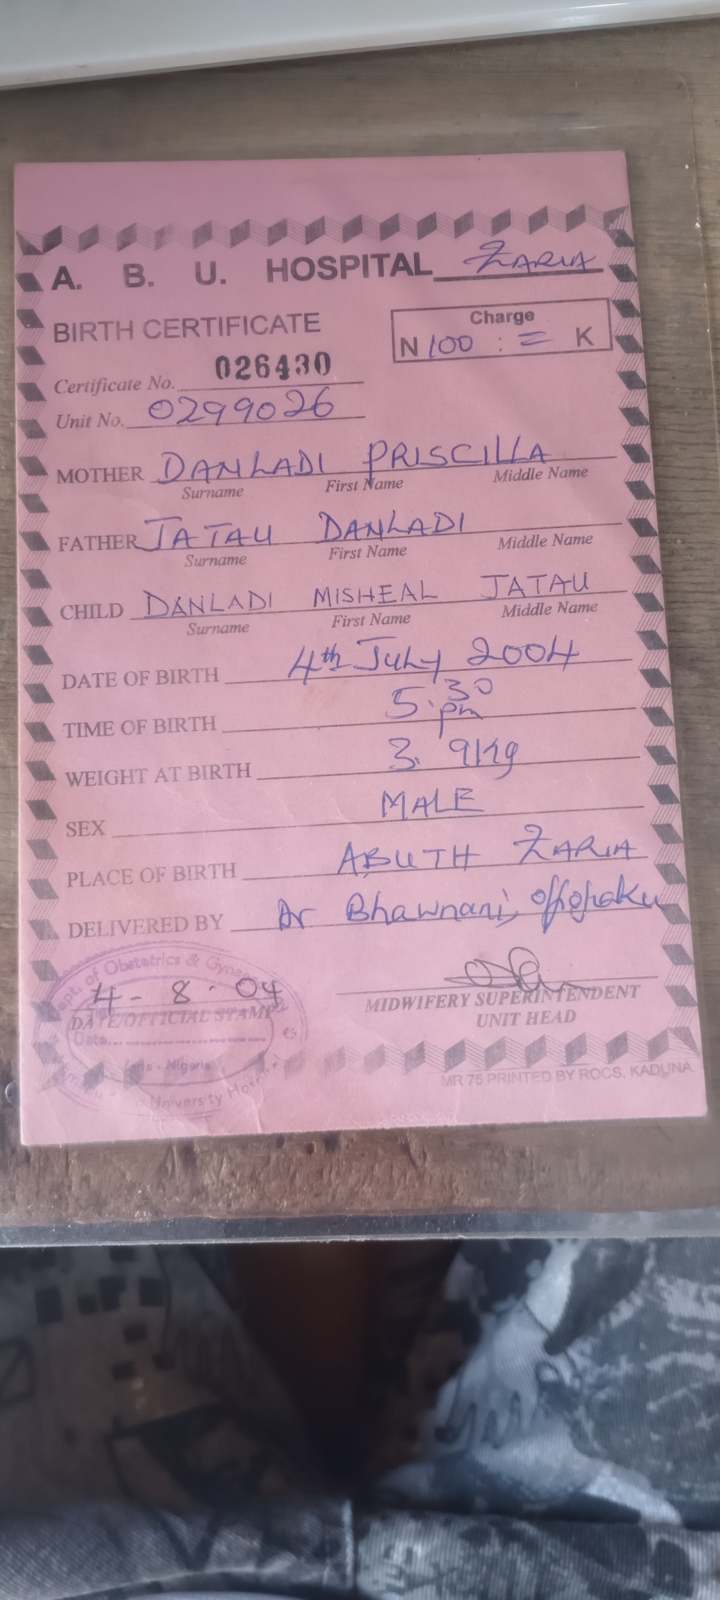 A. B. U. HOSPITAL ZARIA
BIRTH CERTIFICATE
Charge
N 100 : = K
Certificate No. 026430
Unit No. 0299026
MOTHER DANLADI PRISCILLA
Surname First Name Middle Name
FATHER JATAU DANLADI
Surname First Name Middle Name
CHILD DANLADI MISHEAL JATAU
Surname First Name Middle Name
DATE OF BIRTH 4th July 2004
TIME OF BIRTH 5.30 pm
WEIGHT AT BIRTH 3.9Kg
SEX MALE
PLACE OF BIRTH ABUTH ZARIA
DELIVERED BY Dr Bhawnani,
Dept. of Obstetrics &
4 - 8 - 04
DATE/OFFICIAL STAMP
Date
University
MIDWIFERY SUPERINTENDENT
UNIT HEAD
MR 75 PRINTED BY ROCS, KADUNA